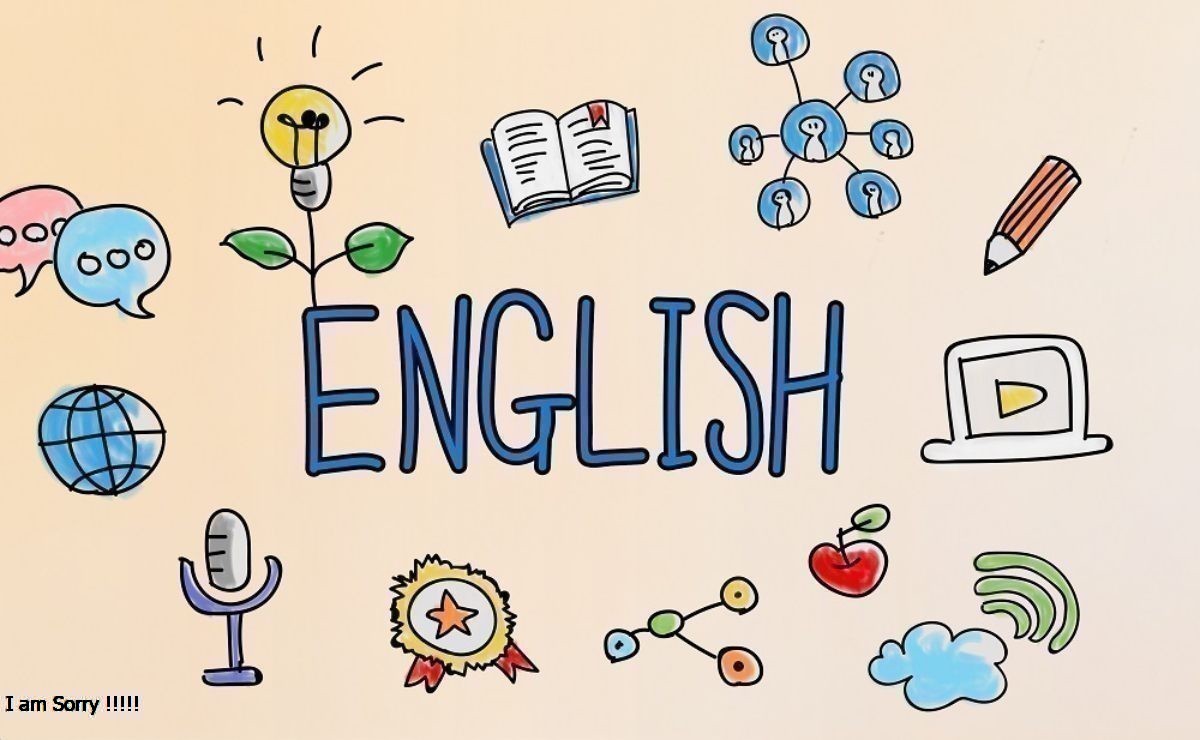 ENGLISH
I am Sorry !!!!!